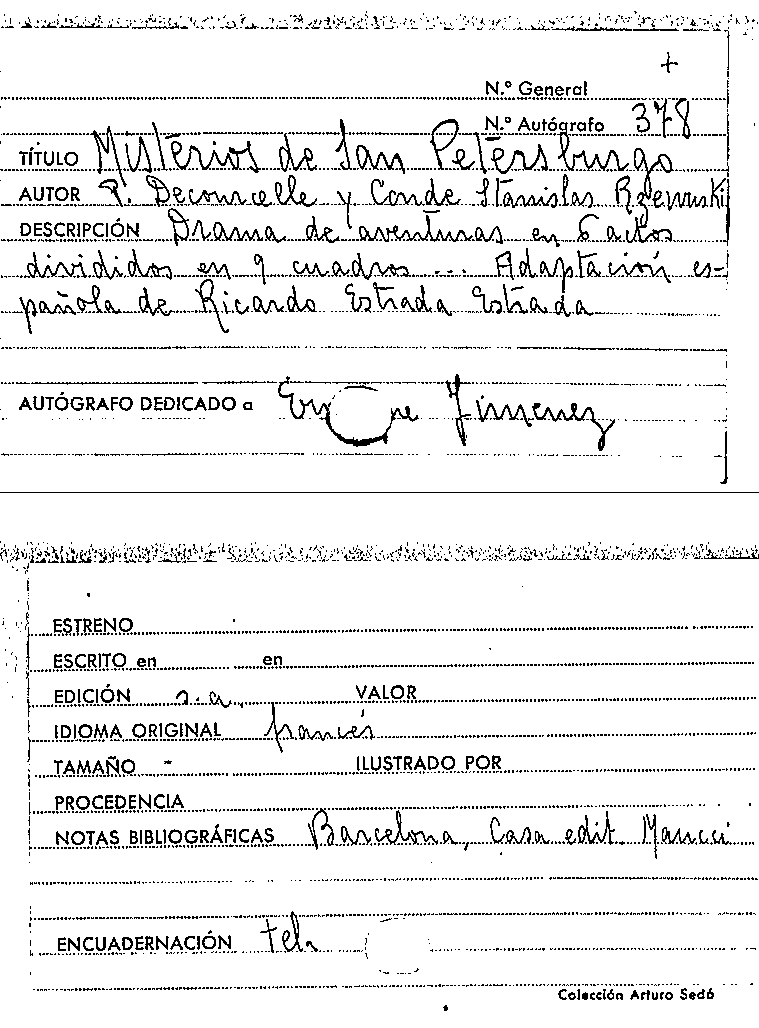 +
N.º General
N.º Autógrafo 378
TÍTULO Misterios de San Petersburgo
AUTOR P. Decourcelle y Conde Stanislas Rzewuski
DESCRIPCIÓN Drama de aventuras en 6 actos
divididos en 9 cuadros ... Adaptación es-
pañola de Ricardo Estrada Estrada
AUTÓGRAFO DEDICADO a Jimenez
ESTRENO
ESCRITO en en
EDICIÓN s.a. VALOR
IDIOMA ORIGINAL francés
TAMAÑO - ILUSTRADO POR
PROCEDENCIA
NOTAS BIBLIOGRÁFICAS Barcelona, Casa edit. Maucci
ENCUADERNACIÓN tela
Colección Arturo Sedó